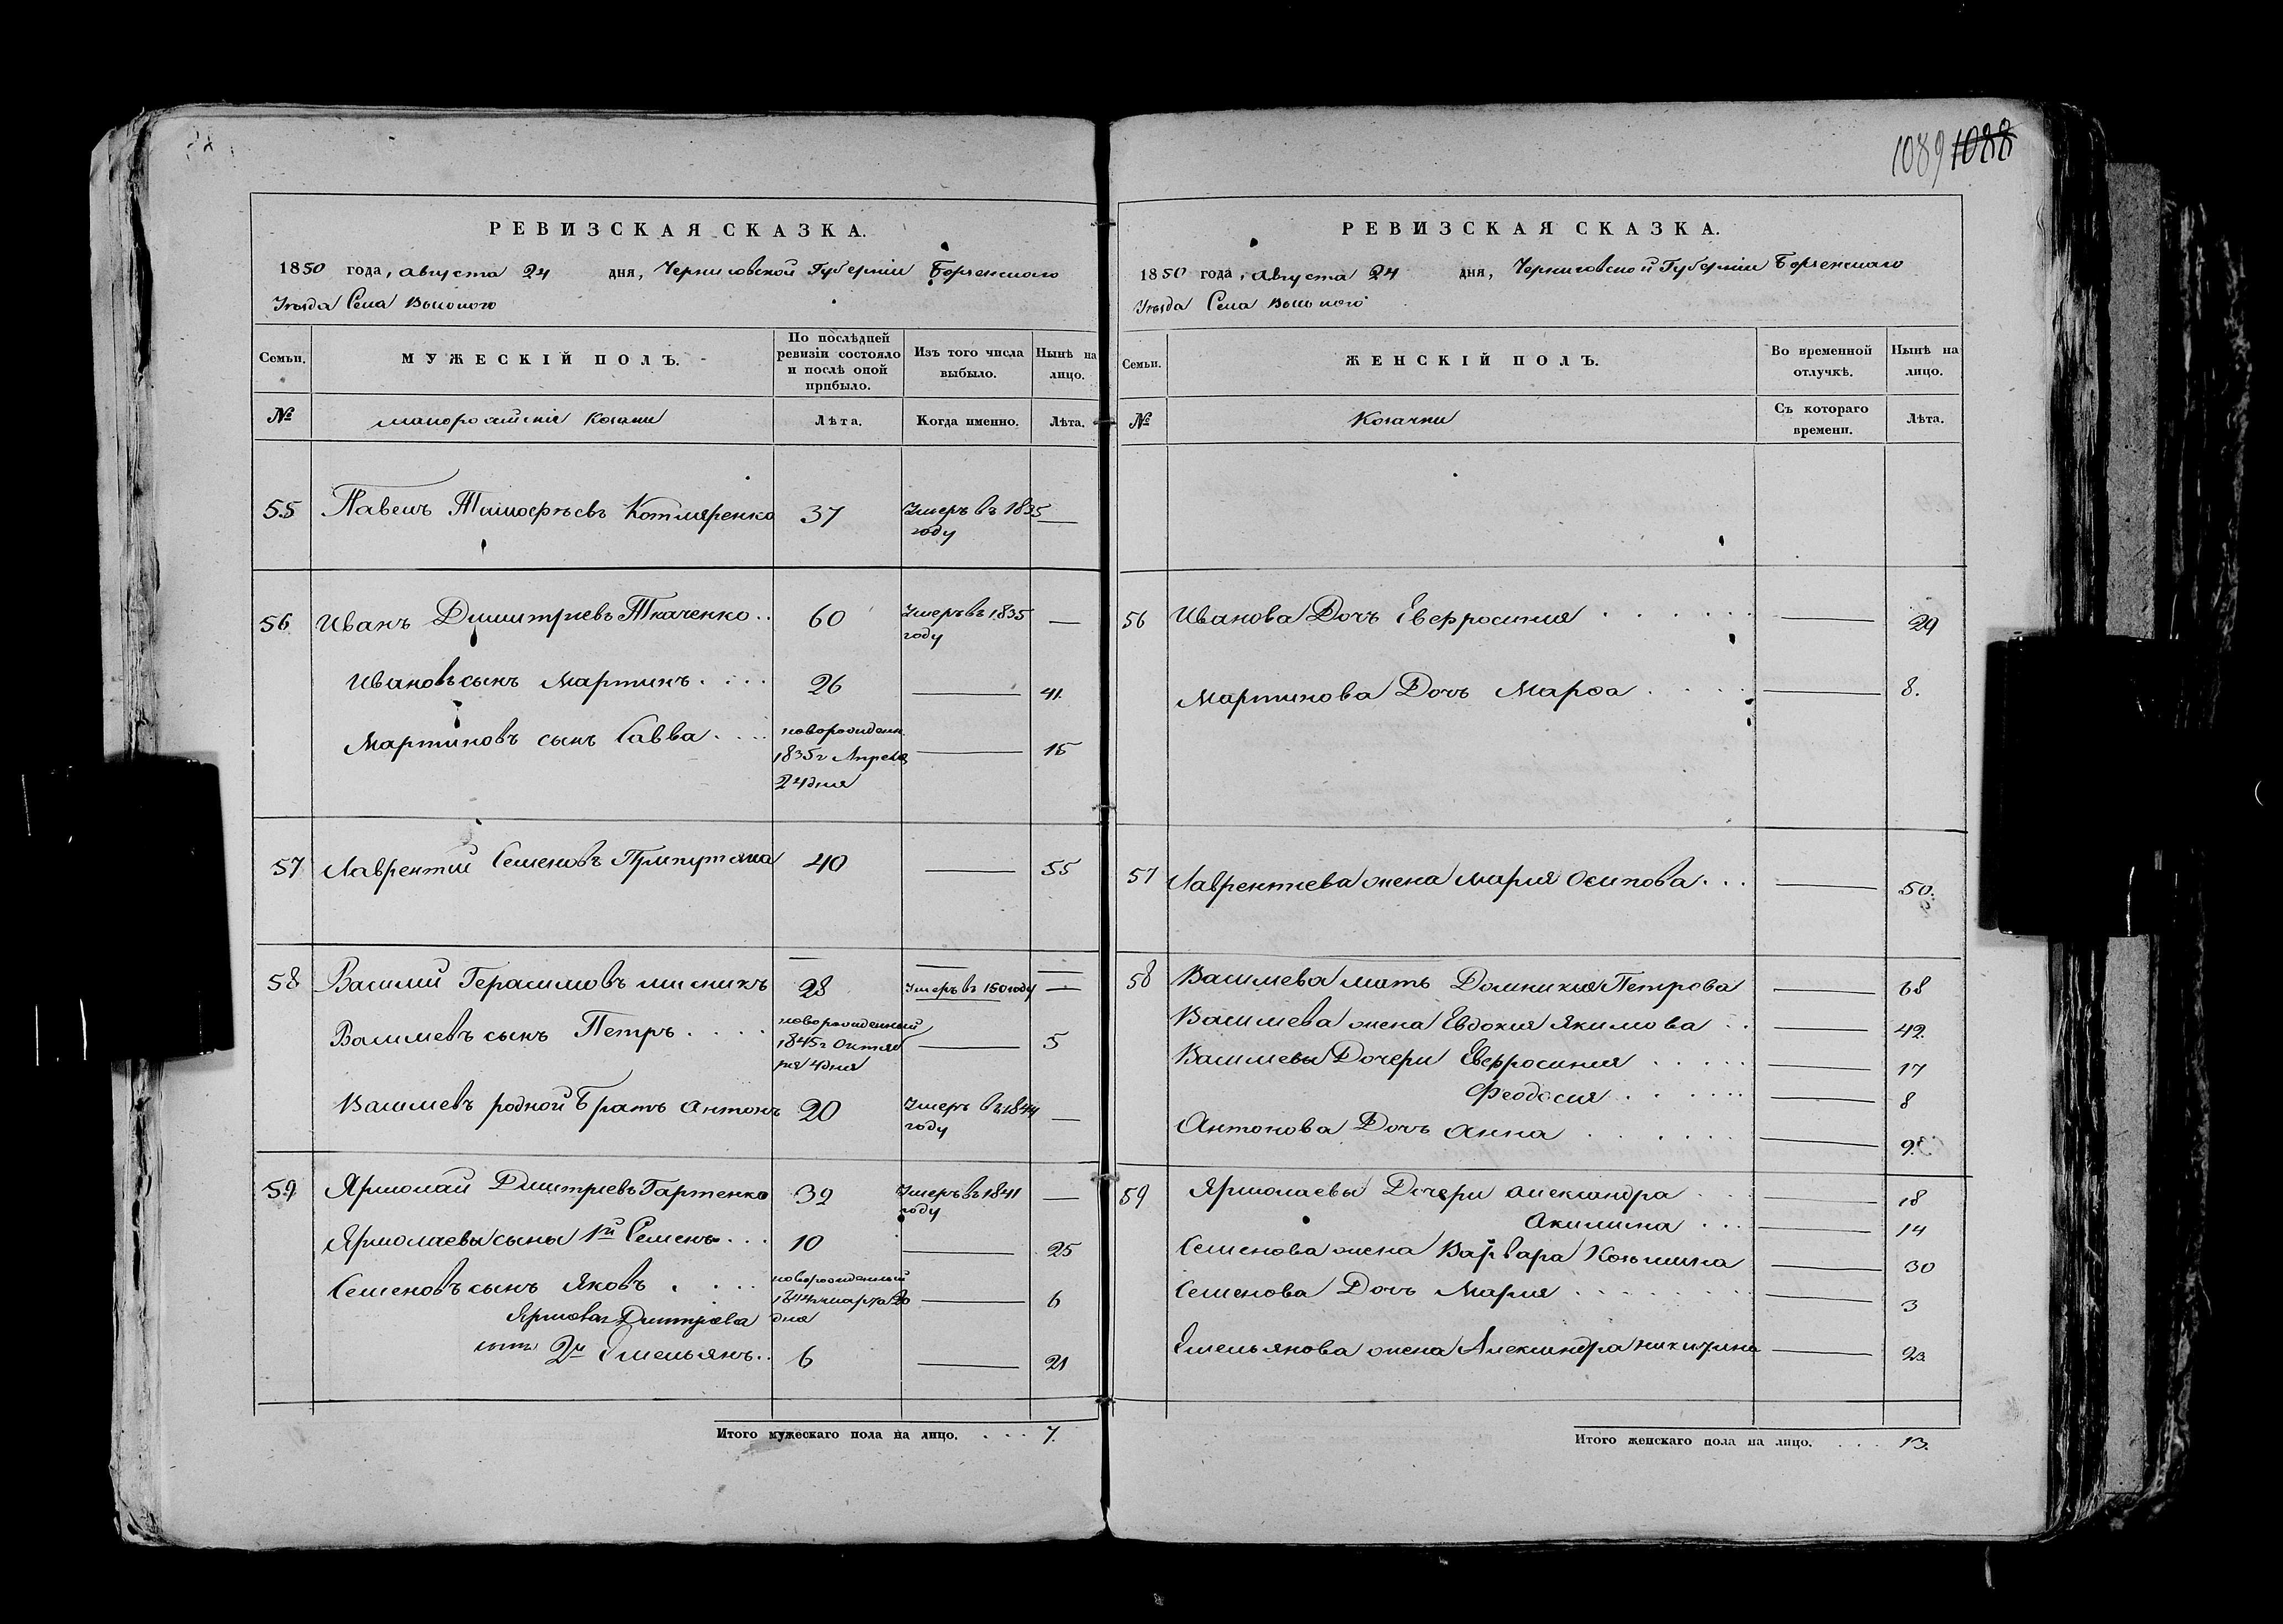 РЕВИЗСКАЯ СКАЗКА.
1850 года, августа 24 дня, Черниговской Губерніи Борзенского
Уезда Села Высокого
Семьи. МУЖЕСКІЙ ПОЛЪ. По послѣдней ревизіи состояло и послѣ оной прибыло. Изъ того числа выбыло. Нынѣ на лицо.
№ малороссійскія Козаки Лѣта. Когда именно. Лѣта.
55 Павелъ Тимофеевъ Котляренко 37 Умеръ въ 1835 году —
56 Иванъ Димитріевъ Ткаченко .. 60 Умеръ въ 1835 году —
Ивановъ сынъ Мартинъ .... 26 — 41.
Мартиновъ сынъ Савва .... новорожден. 1835 г Апреля 24 дня — 15
57 Лаврентий Семеновъ 40 — 55
58 Василий Герасимовъ мисникъ 28 Умеръ въ 150 году —
Васильевъ сынъ Петръ .... новорожденный 1845 г Октября 4 дня — 5
Васильевъ родной братъ Антонъ 20 Умеръ въ 1844 году —
59 Ярмолай Дмитріевъ Гартенко 39 Умеръ въ 1841 году —
Ярмолаевы сыны 1й Семенъ ... 10 — 25
Семеновъ сынъ Яковъ .... новорожденный 1844 марта 20 дня — 6
Дмитріева
2й Емельянъ .. 6 — 21
Итого мужескаго пола на лицо. . . . 7.
1089 1088
РЕВИЗСКАЯ СКАЗКА.
1850 года, августа 24 дня, Черниговской Губерніи Борзенского
Уезда Села Высокого
Семьи. ЖЕНСКІЙ ПОЛЪ. Во временной отлучкѣ. Нынѣ на лицо.
№ Козачки Съ котораго времени. Лѣта.
56 Иванова Дочъ Евфросиния ...... — 29
Мартинова Дочъ Марфа .... — 8.
57 Лаврентиева жена Мария Осипова ... — 50.
58 Васильева мать Домникия Петрова — 68
Васильева жена Евдокия Якимова .. — 42.
Васильевы Дочери Евфросиния ..... — 17
Феодосия ...... — 8
Антонова Дочъ Анна ...... — 9.
59 Ярмолаевы Дочери Александра ... — 18
Акилина ... — 14
Семенова жена Варвара Козьмина — 30
Семенова Дочъ Мария ........ — 3
Емельянова жена Александра Никитина — 23
Итого женскаго пола на лицо. . . . 13.